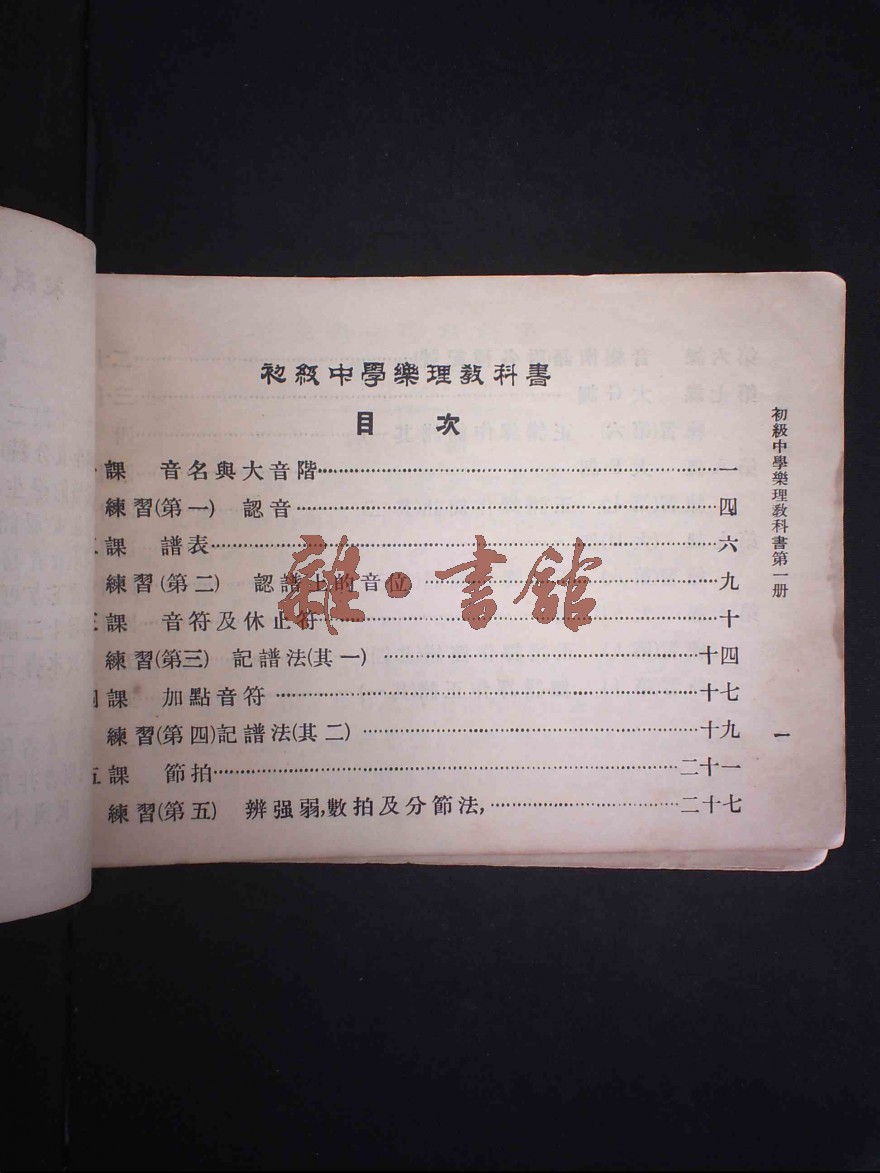 初級中學樂理教科書
目 次
課 音名與大音階……一
練習(第一) 認音……四
課 譜表……六
練習(第二) 認譜上的音位……九
課 音符及休止符……十
練習(第三) 記譜法(其一)……十四
課 加點音符……十七
練習(第四)記譜法(其二)……十九
五課 節拍……二十一
練習(第五) 辨强弱,數拍及分節法,……二十七
初級中學樂理教科書第一册
一
雜·書館